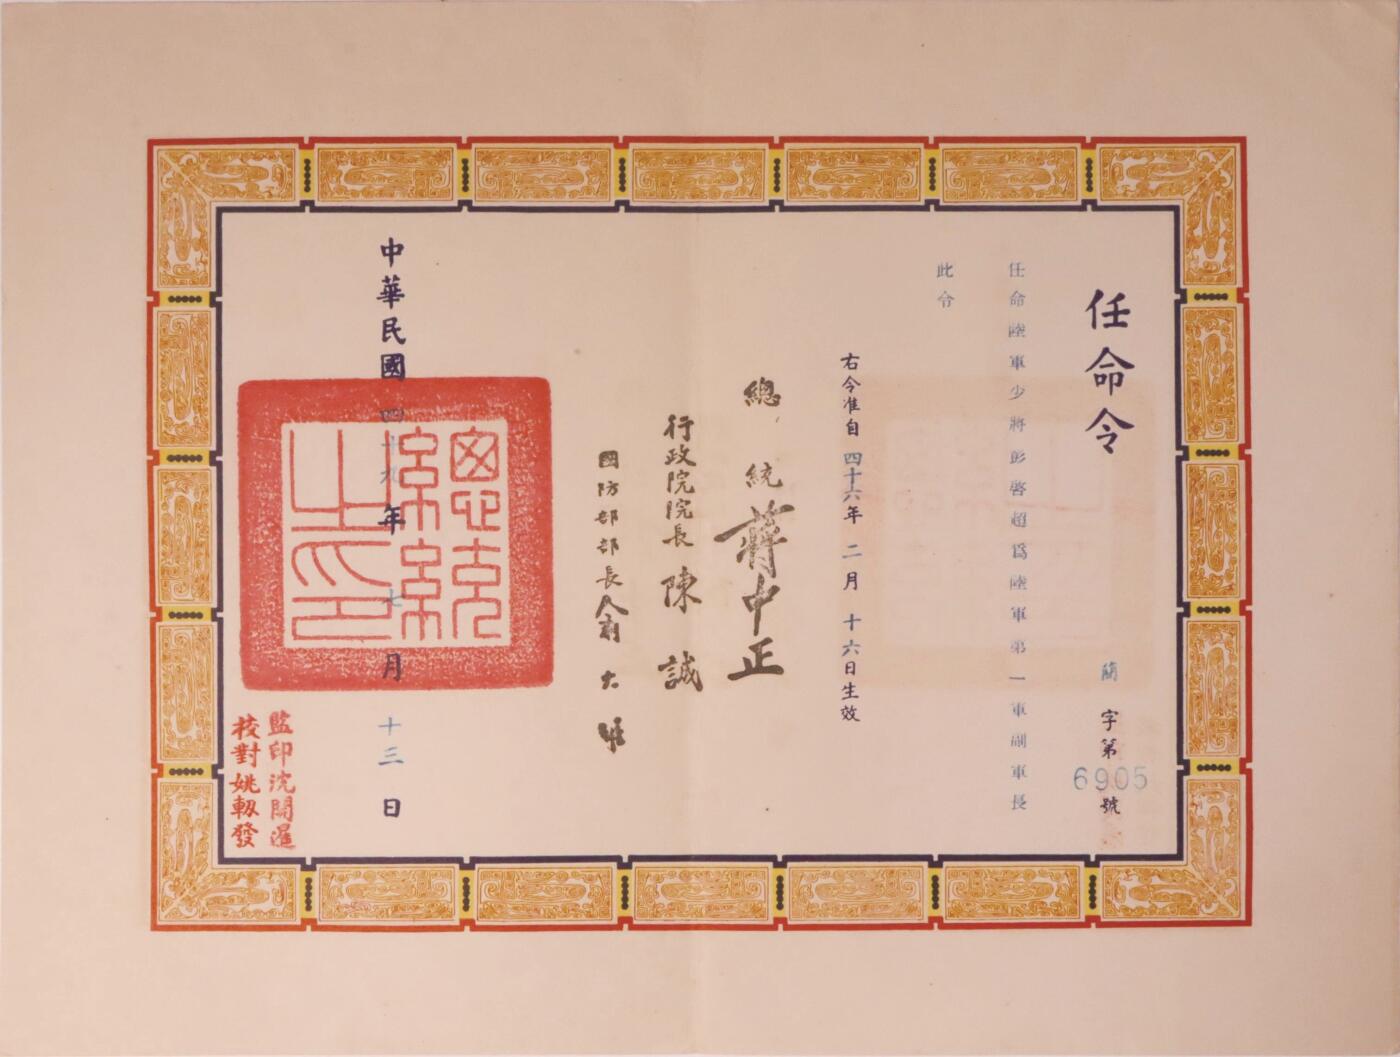 任命令
簡字第6905號
任命陸軍少將彭啓超爲陸軍第一軍副軍長
此令
右令准自四十六年二月十六日生效
總統蔣中正
行政院院長陳誠
國防部部長俞大維
中華民國四十九年七月十三日
總統之印
監印沈開運
校對姚軔發